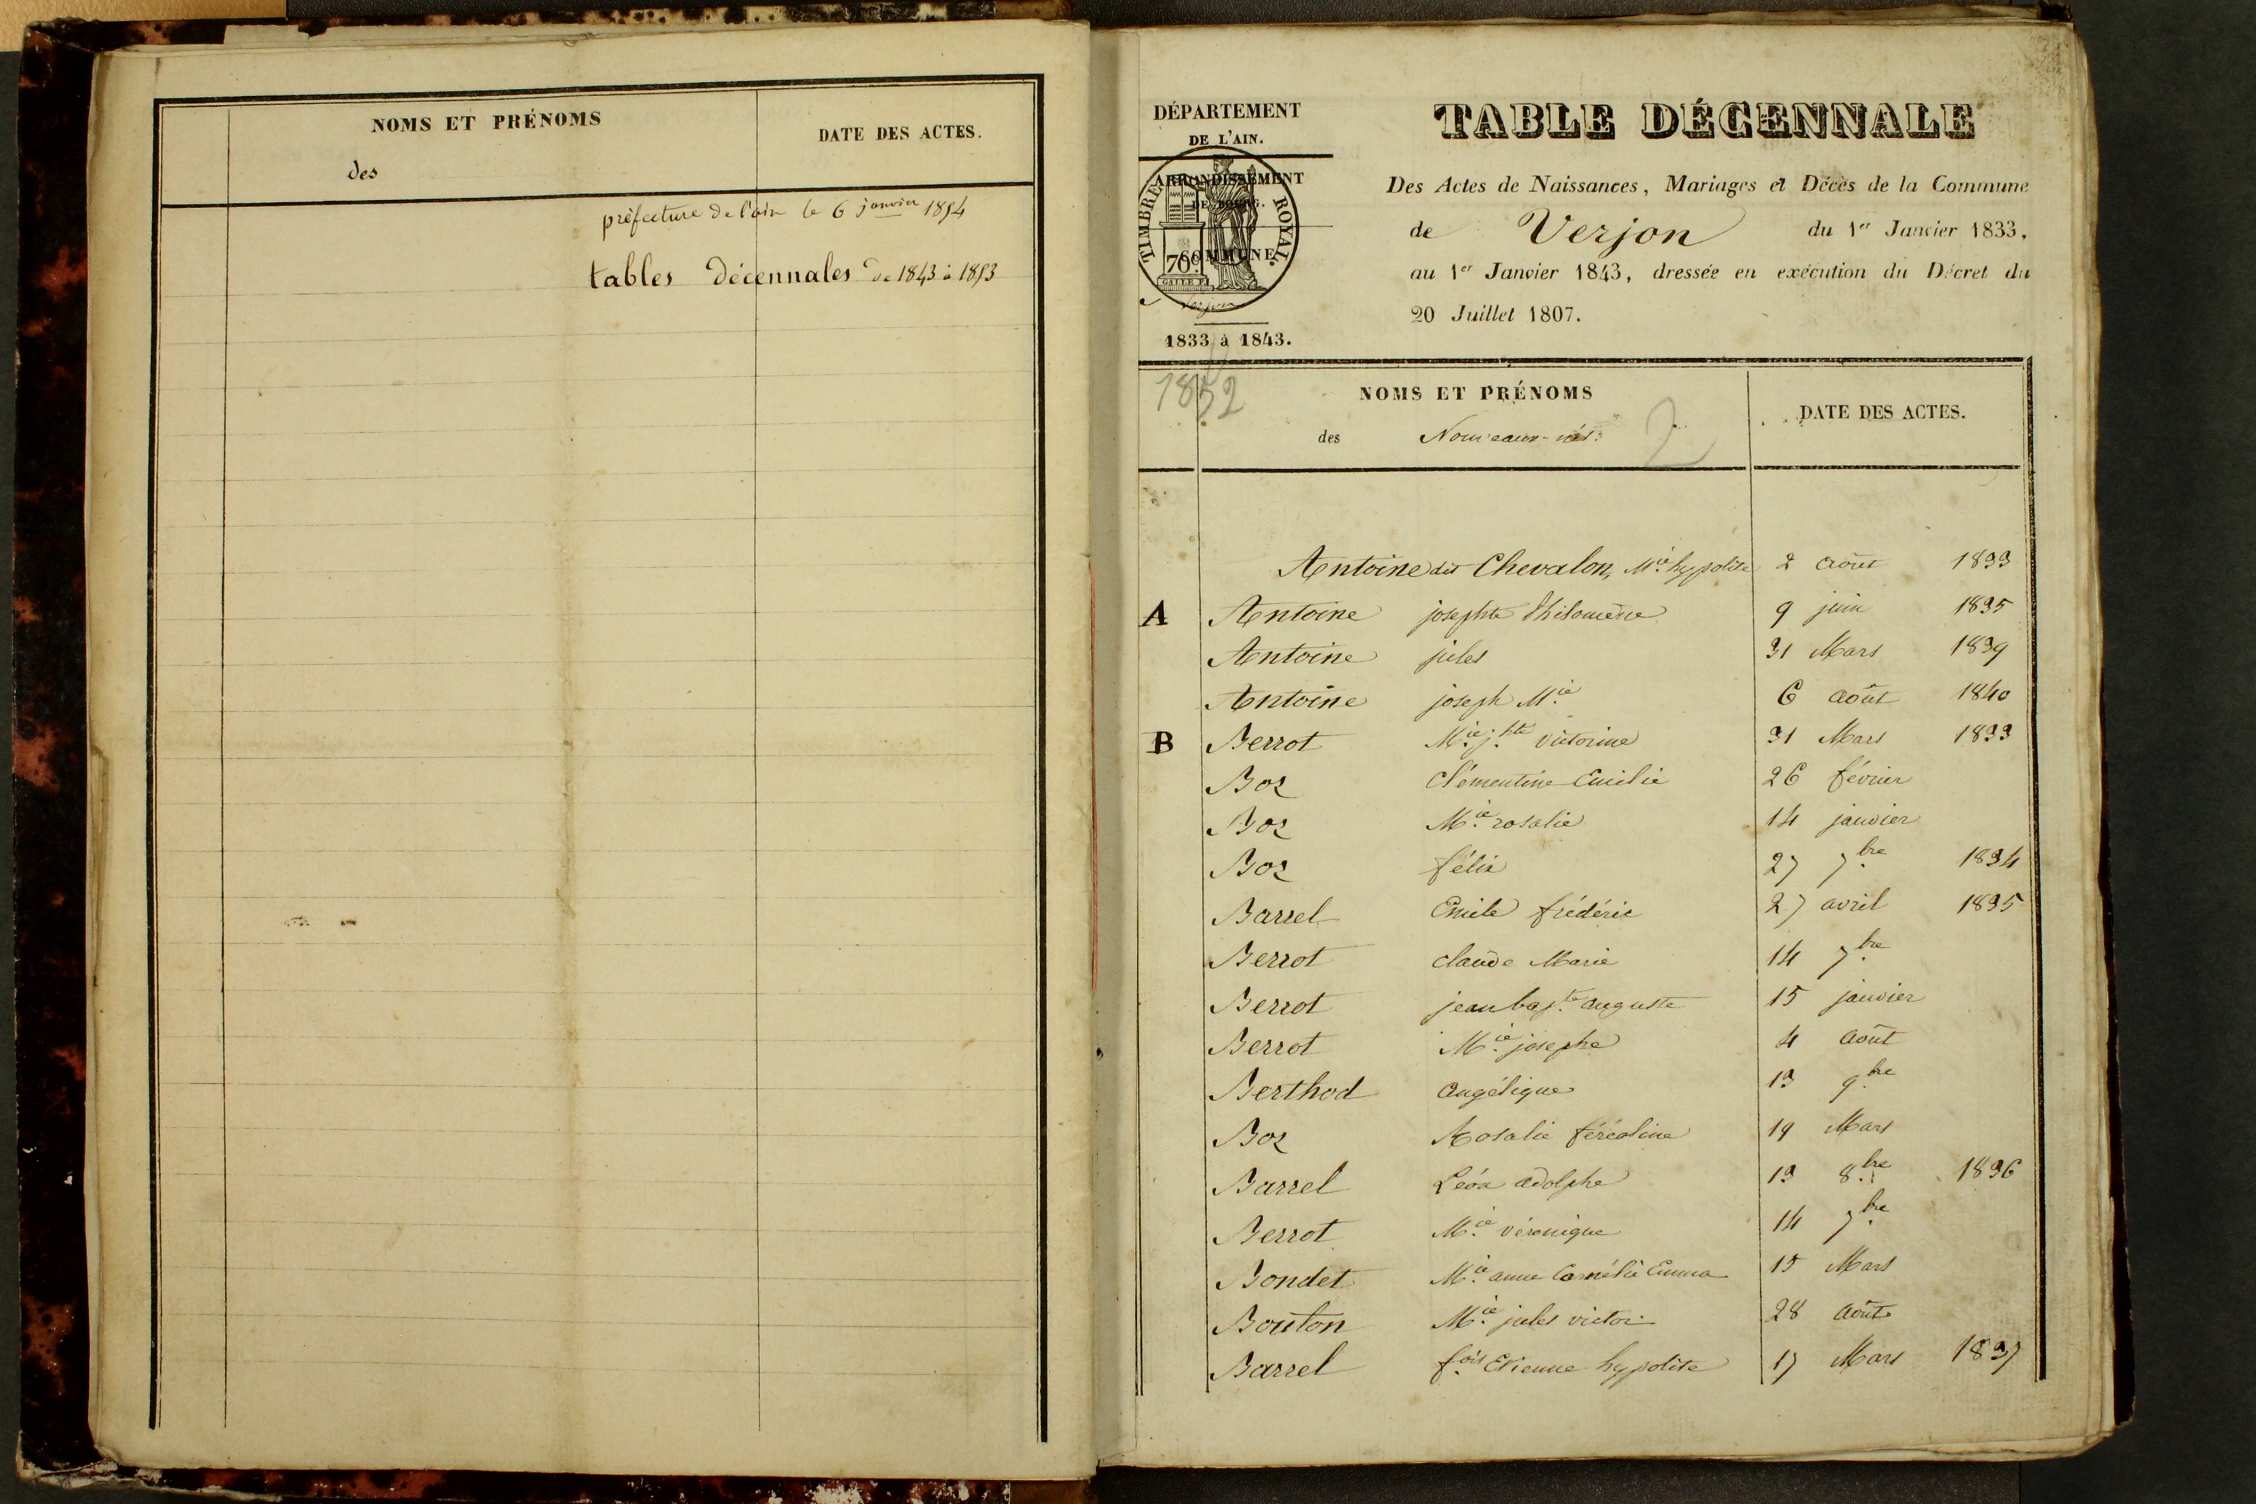 NOMS ET PRÉNOMS
DATE DES ACTES.
des
préfecture de l'ain le 6 janvier 1854
tables décennales de 1843 à 1853
DÉPARTEMENT
DE L'AIN.
ARRONDISSEMENT
DE BOURG.
COMMUNE
TIMBRE ROYAL.
70c
Verjon
1833 à 1843.
TABLE DÉCENNALE
Des Actes de Naissances, Mariages et Décès de la Commune
de Verjon du 1er Janvier 1833,
au 1er Janvier 1843, dressée en exécution du Décret du
20 Juillet 1807.
1832
NOMS ET PRÉNOMS
DATE DES ACTES.
des Nouveaux-nés. 2
Antoine dit Chevalon, Mie hypolite 2 août 1833
A Antoine josephte Philomène 9 juin 1835
Antoine jules 31 Mars 1839
Antoine joseph Mie 6 août 1840
B Berrot Mie jhte victorine 31 Mars 1833
Boz Clémentine Emilie 26 février
Boz Mie rosalie 14 janvier
Boz félix 27 7bre 1834
Barrel Emile frédéric 27 avril 1835
Berrot claude Marie 14 7bre
Berrot jean bapte auguste 15 janvier
Berrot Mie josephe 4 août
Berthod angélique 13 9bre
Boz Rosalie féréoline 19 Mars
Barrel Léon adolphe 13 8bre 1836
Berrot Mie véronique 14 7bre
Bondet Mie anne Cornélie Emma 15 Mars
Bouton Mie jules victor 28 août
Barrel fois Etienne hypolite 17 Mars 1837